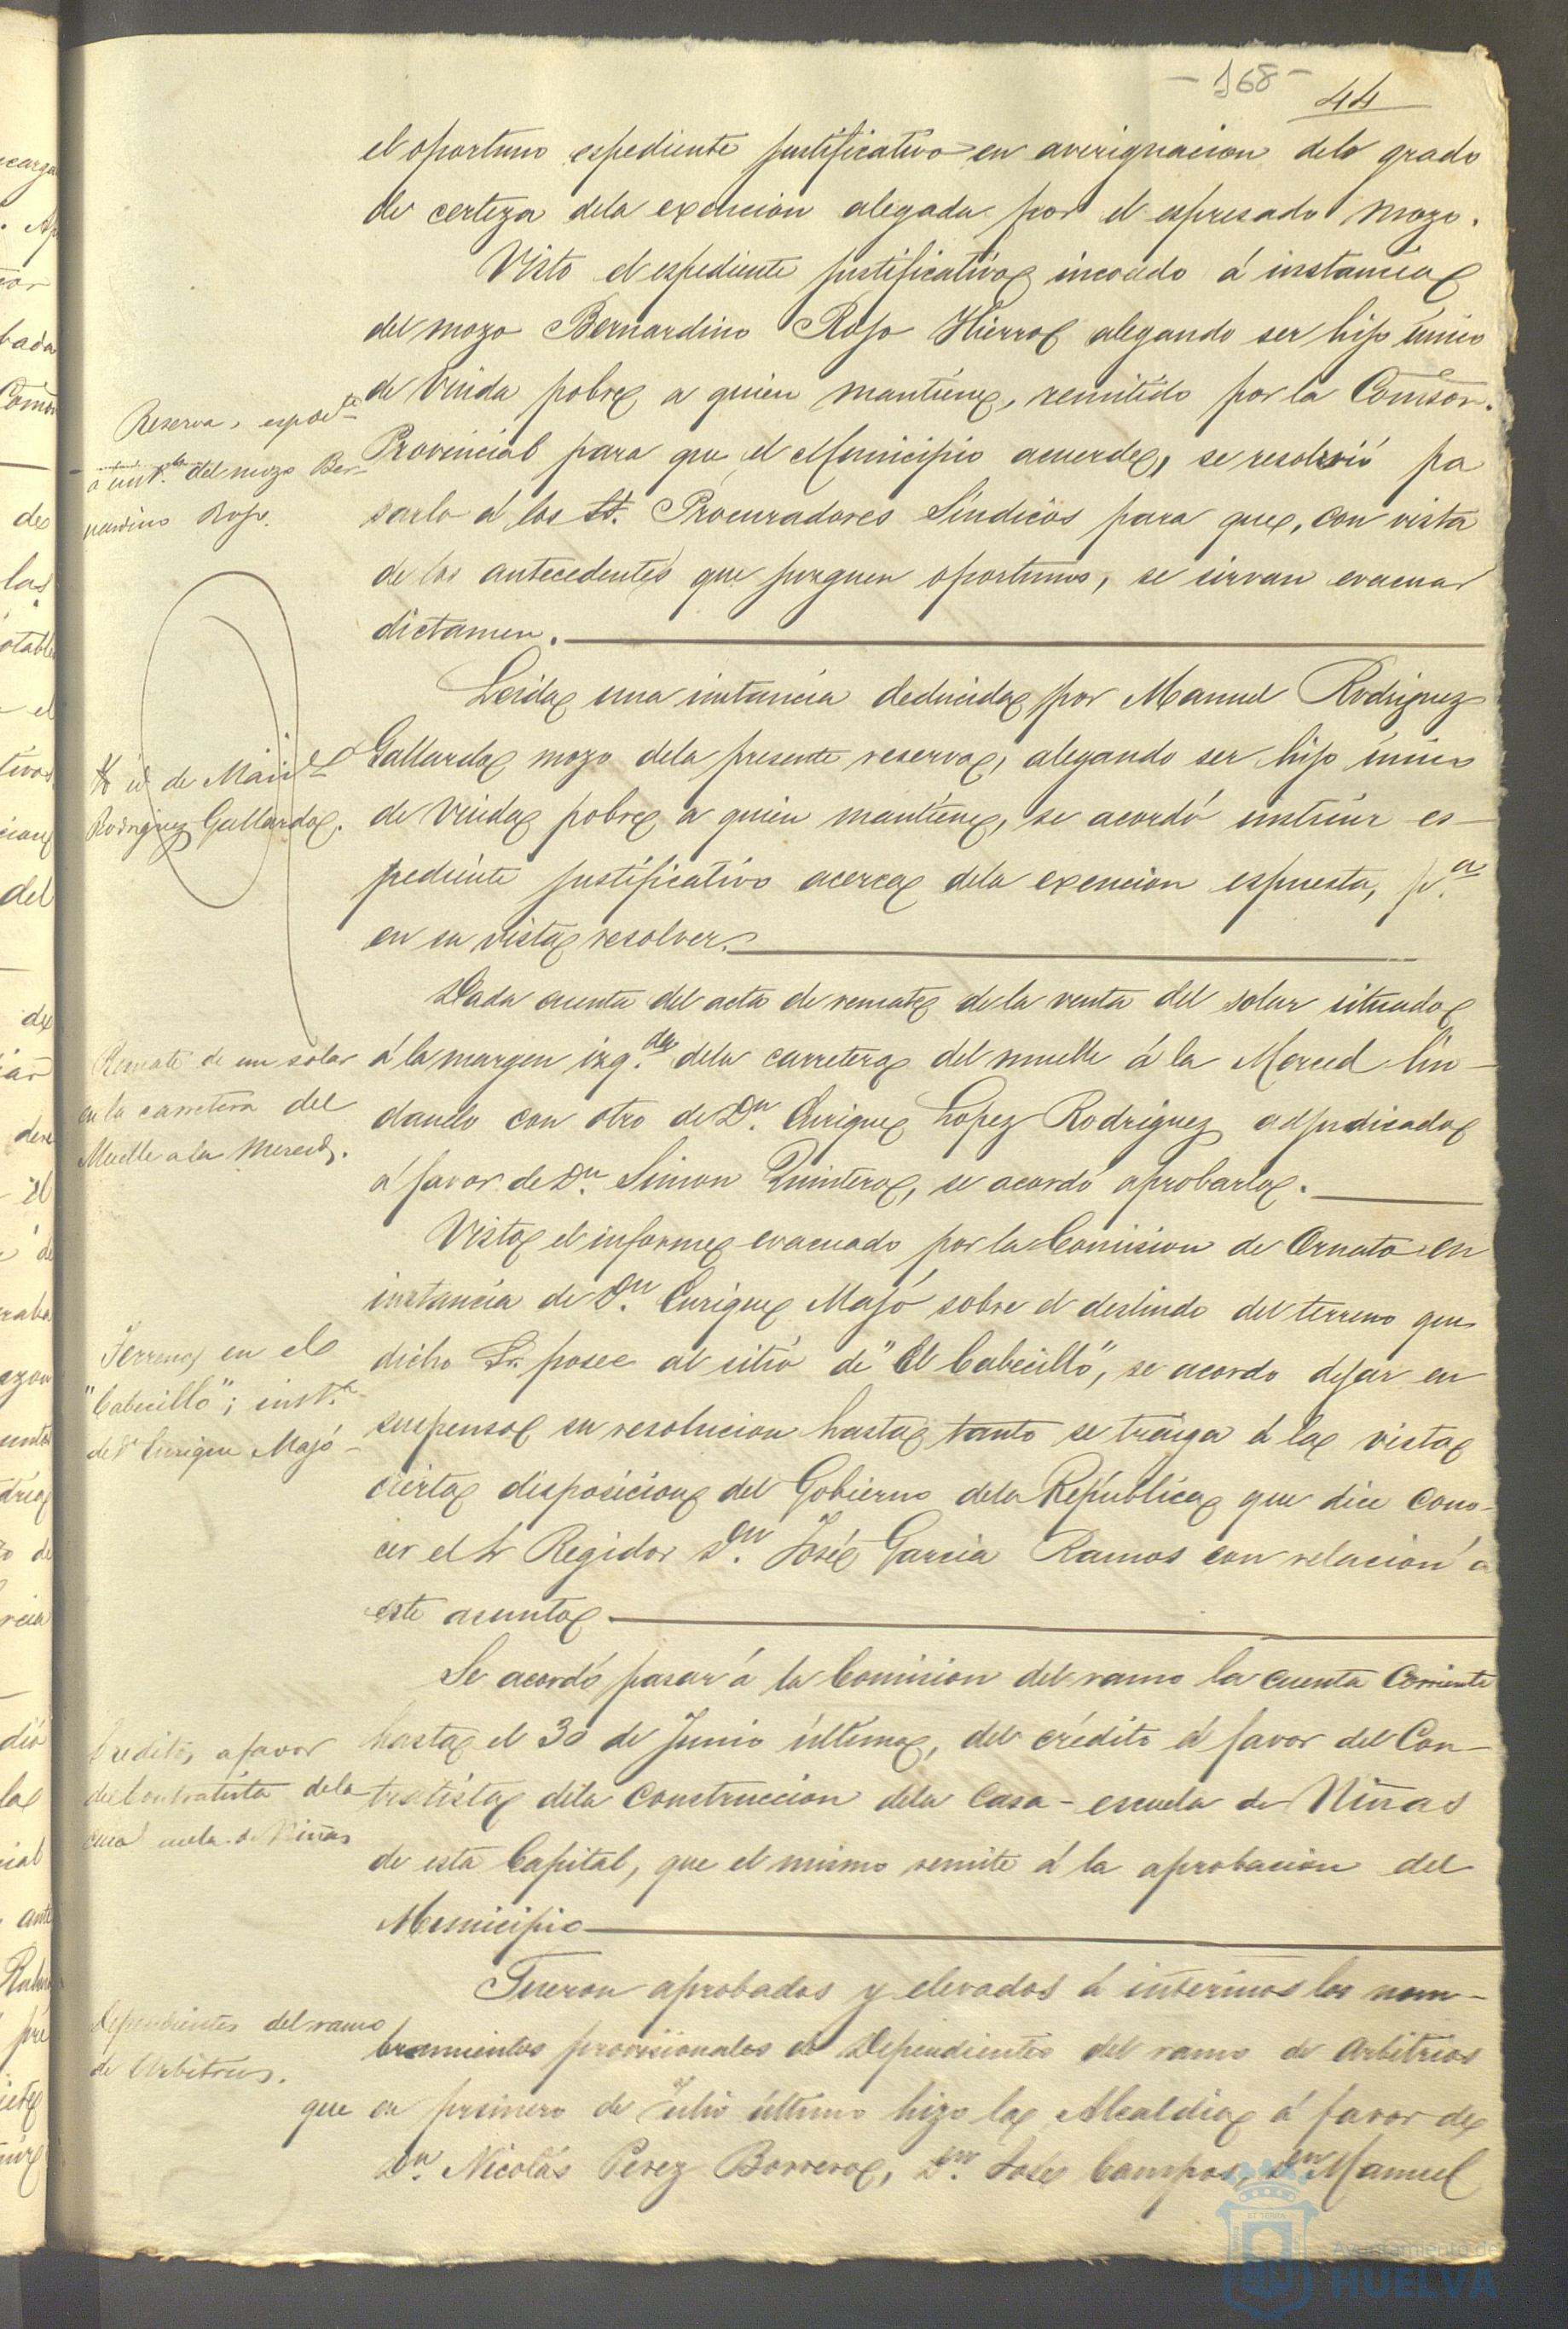 - 168 -
44
el oportuno espediente justificativo en averiguacion delo grado
de certeza dela exencion alegada por el espresado mozo.
Visto el espediente justificativo incoado á instancia
del mozo Bernardino Rojo Hierro alegando ser hijo único
de Viuda pobre a quien mantiene, remitido por la Comison.
Provincial para que el Municipio acuerde, se resolvió pa
sarlo á los SS. Procuradores Síndicos para que, con vista
de los antecedentes que juzguen oportunos, se sirvan evacuar
dictamen.
Reserva, espdte
á inst.a del mozo Ber-
nardino Rojo.
Leida una instancia deducida por Manuel Rodriguez
Gallardo mozo dela presente reserva, alegando ser hijo único
de Viuda pobre a quien mantiene, se acordó instruir es-
pediente justificativo acerca dela exencion espuesta, p.a
en su vista resolver.
id de Man.l
Rodriguez Gallardo.
Dada cuenta del acta de remate de la venta del solar situado
á la margen izq.da dela carretera del muelle á la Merced lin-
dando con otro de Dn. Enrique Lopez Rodriguez adjudicado
á favor de Dn. Simon Quintero, se acordó aprobarlo.
Remate de un solar
en la carretera del
Muelle a la Merced.
Visto el informe evacuado por la Comision de Ornato en
instancia de Dn. Enrique Majó sobre el deslinde del terreno que
dicho Sr. posee al sitio de "El Cabecillo", se acordo dejar en
suspenso su resolucion hasta tanto se traiga á la vista
cierta disposicion del Gobierno dela República que dice cono-
cer el Sr Regidor Dn. José Garcia Ramos con relacion á
este asunto.
Terreno en el
"Cabecillo"; inst.a
de Dn Enrique Majó
Se acordó pasar á la Comision del ramo la cuenta corriente
hasta el 30 de Junio último, del crédito á favor del Con-
tratista dela construccion dela Casa-escuela de Niñas
de esta Capital, que el mismo remite á la aprobacion del
Municipio
Credito, a favor
del Contratista dela
de Niñas
Fueron aprobados y elevados á interinos los nom-
bramientos provisionales de Dependientes del ramo de Arbitrios
que en primero de Julio último hizo la Alcaldia á favor de
Dn. Nicolás Perez Borrero, Dn. José Campos, Dn Manuel
Dependientes del ramo
de Arbitrios.
Ayuntamiento de
HUELVA